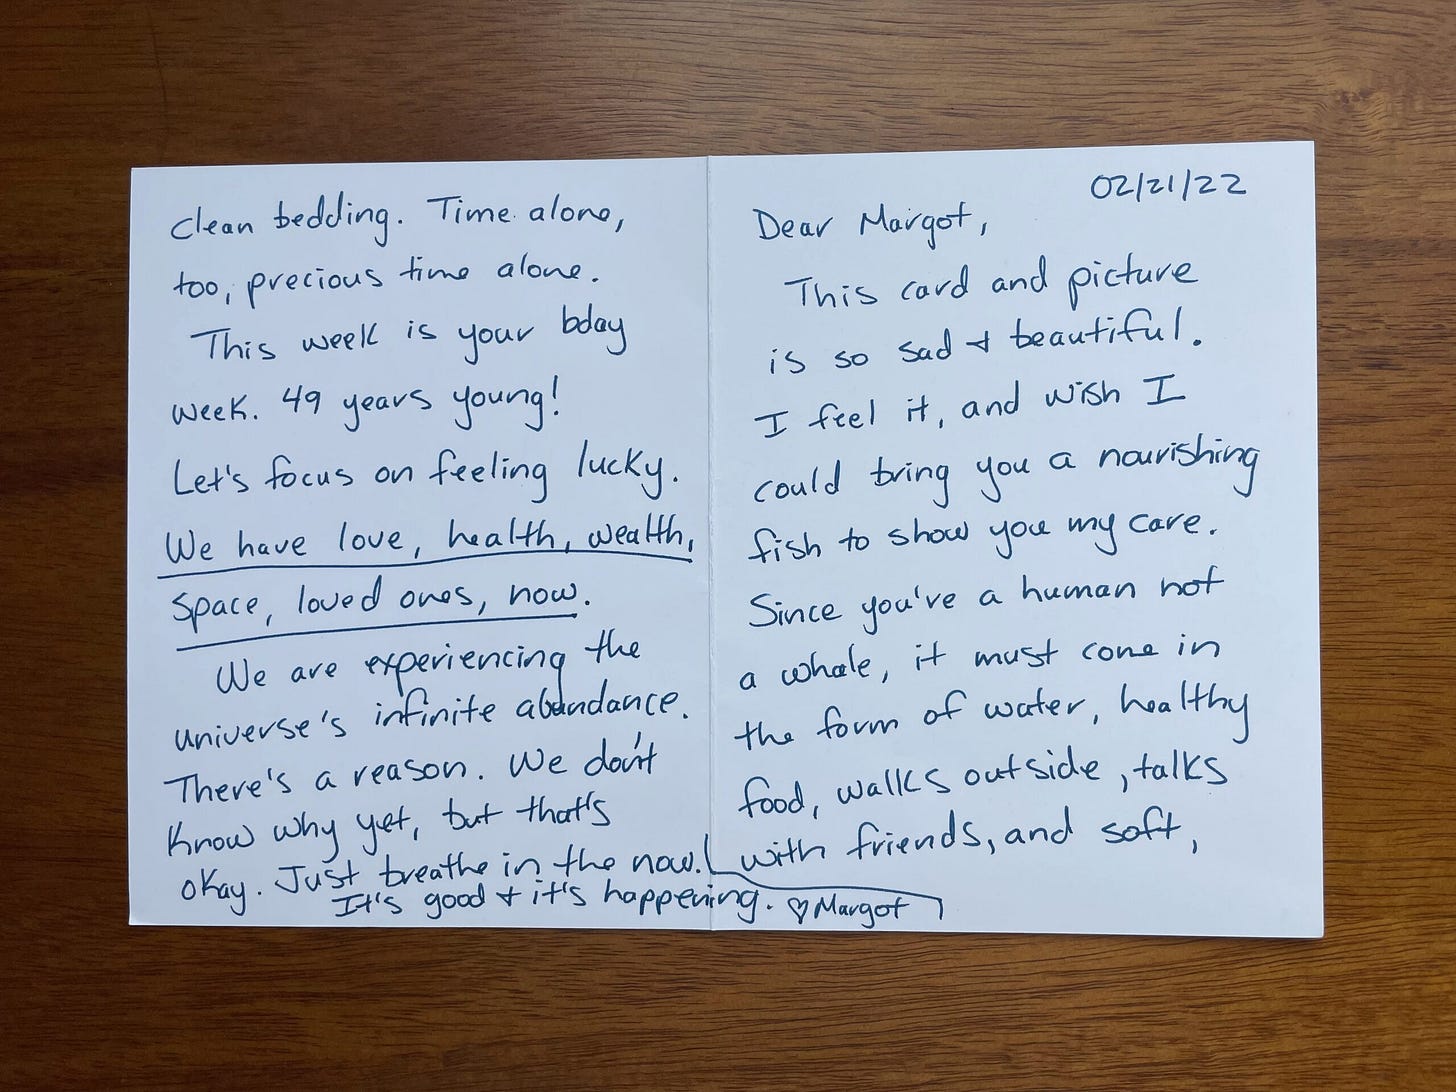 02/21/22
Dear Margot,
This card and picture
is so sad + beautiful.
I feel it, and wish I
could bring you a nourishing
fish to show you my care.
Since you've a human not
a whale, it must come in
the form of water, healthy
food, walks outside, talks
with friends, and soft,
clean bedding. Time alone,
too, precious time alone.
This week is your bday
week. 49 years young!
Let's focus on feeling lucky.
We have love, health, wealth,
space, loved ones, now.
We are experiencing the
universe's infinite abundance.
There's a reason. We don't
know why yet, but that's
okay. Just breathe in the now.
It's good + it's happening. ♡ Margot